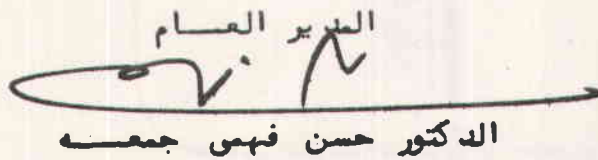 المدير العــام
الدكتور حسن فهمى جمعــه